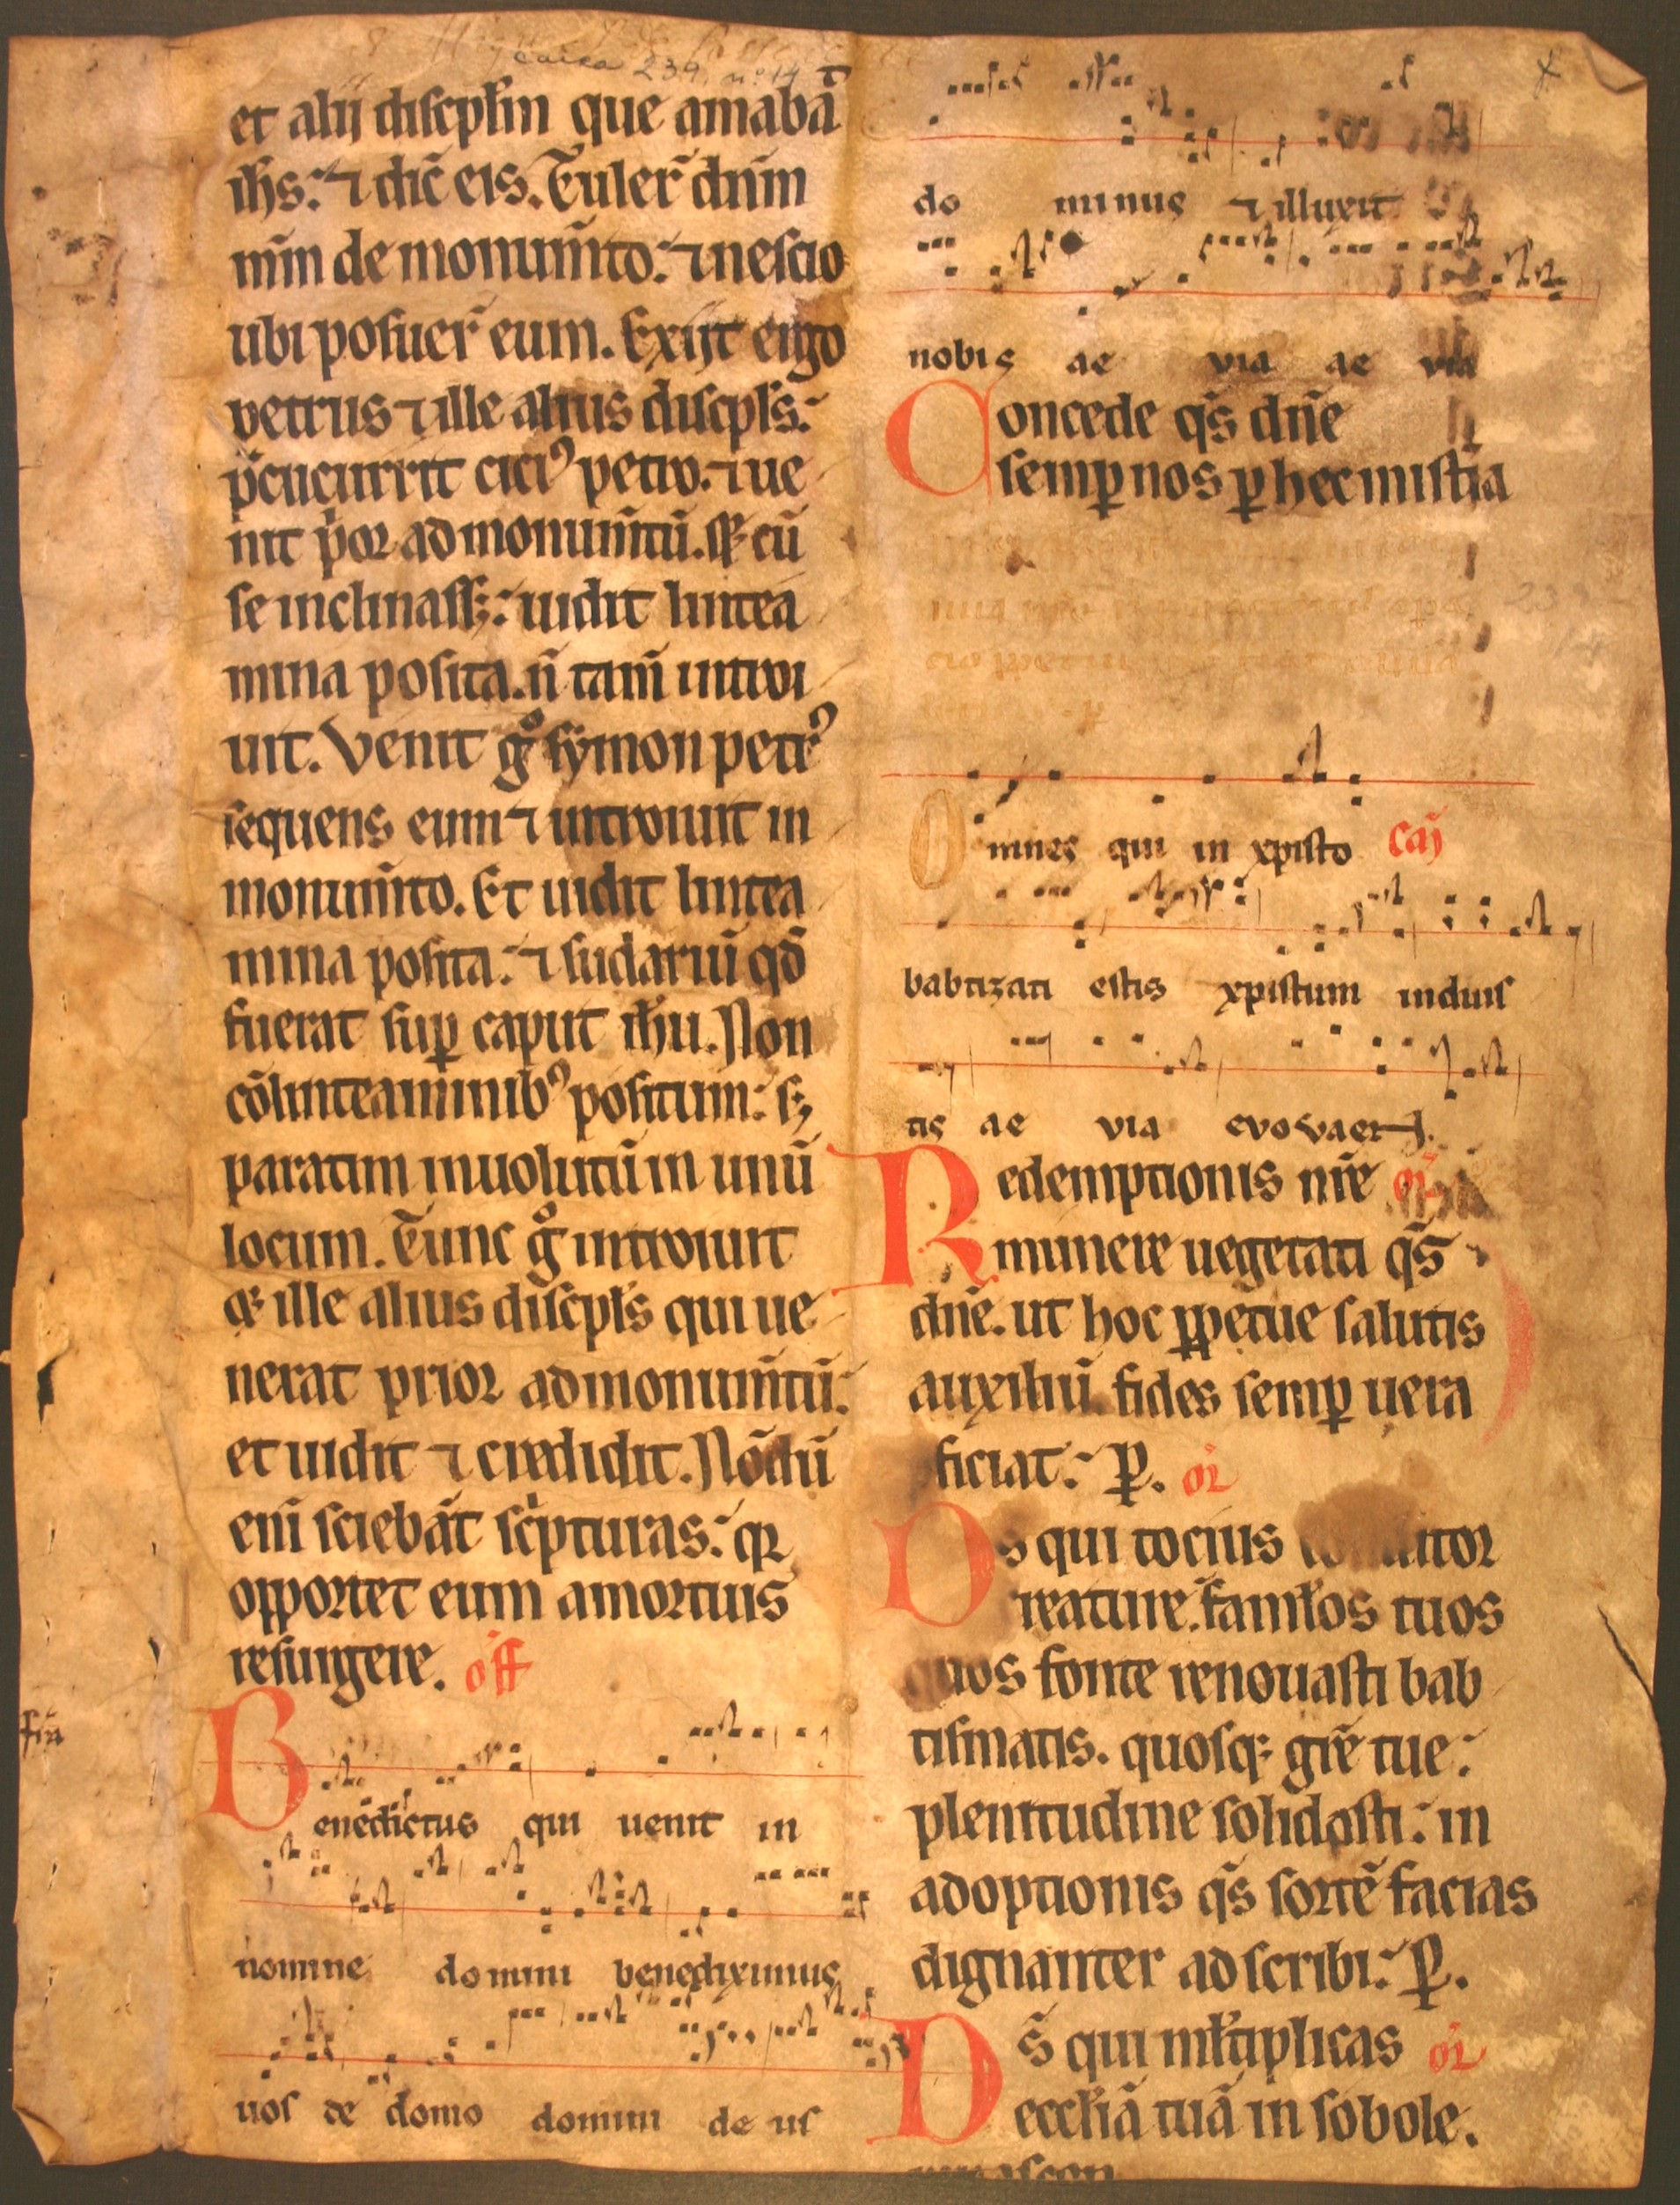 carca 239. nº 14
et alij discip̄lm que amabāt
ih̄s: ⁊ dic̄ eis. Tuler̄ dnm̄
mm̄ de monum̄to: ⁊ nescio
ubi posuer̄ eum. Exijt ergo
petrus ⁊ ille alius discipl̄s:
p̄cucurrit citiꝰ petro. ⁊ ue
nit p̄or ad monum̄tū. Et cū
se inclinass;: uidit lintea
mina posita. n̄ tam̄ introi
uit. Venit gͦ symon petrꝰ
sequens eum ⁊ introiuit in
monum̄to. Et uidit lintea
mina posita: ⁊ sudariū qd̄
fuerat suꝑ caput ih̄u. Non
cō linteaminibꝰ positum: s;
paratim inuolutū in unū
locum. Tunc gͦ introiuit
⁊ ille alius discipl̄s qui ue
nerat prior ad monum̄tū:
et uidit ⁊ credidit. Nōdū
eni sciebāt sc̄pturas: qꝛ
opportet eum amortuis
resurgere. off̄
Benedictus qui uenit in
nomine domini benediximus
uos de domo domini de us
do minus ⁊ illuxit
nobis ae via ae via
Concede qs̄ dn̄e
semꝑ nos ꝑ hec mist̄ia
Omnes qui in xpisto Cōı̄
babtizati estis xpistum induis
tis ae via evovaeṫ
Redemptionis nr̄e or̄
munere uegetati qs̄
dn̄e. ut hoc ꝑpetue salutis
auxiliū fides semꝑ uera
ficiat: ꝑ. or̄
Ds qui tocius conditor
reature. famłos tuos
quos fonte renouasti bab
tismatis. quosq; gr̄e tue:
plenitudine solidasti: in
adoptionis qs̄ sortē facias
dignanter ad scribi: ꝑ.
Ds̄ qui młtiplicas or̄
eccłiā tuā in sobole.